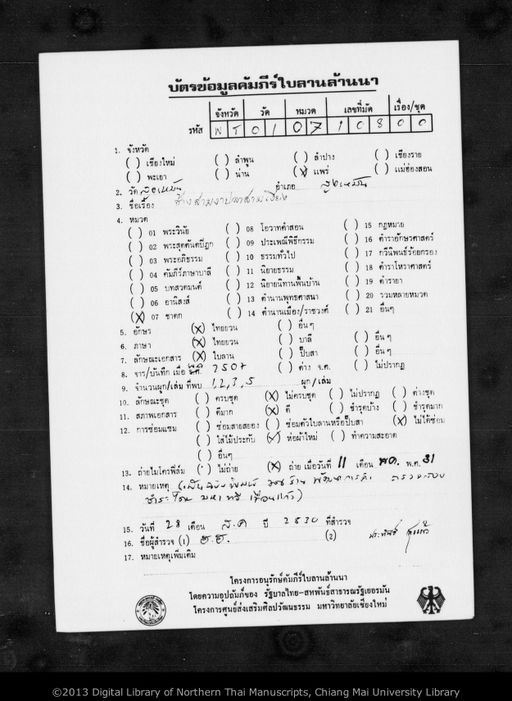 บัตรข้อมูลคัมภีร์ใบลานล้านนา
จังหวัด วัด หมวด เลขที่มัด เรื่อง/ชุด
รหัส N T 0 1 0 7 1 0 8 0 0
1. จังหวัด
( ) เชียงใหม่ ( ) ลำพูน ( ) ลำปาง ( ) เชียงราย
( ) พะเยา ( ) น่าน (/) แพร่ ( ) แม่ฮ่องสอน
2. วัด สูงเม่น อำเภอ สูงเม่น
3. ชื่อเรื่อง
4. หมวด
( ) 01 พระวินัย ( ) 08 โอวาทคำสอน ( ) 15 กฎหมาย
( ) 02 พระสุตตันตปิฎก ( ) 09 ประเพณีพิธีกรรม ( ) 16 ตำราอักษรศาสตร์
( ) 03 พระอภิธรรม ( ) 10 ธรรมทั่วไป ( ) 17 กวีนิพนธ์ร้อยกรอง
( ) 04 คัมภีร์ภาษาบาลี ( ) 11 นิยายธรรม ( ) 18 ตำราโหราศาสตร์
( ) 05 บทสวดมนต์ ( ) 12 นิยายนิทานพื้นบ้าน ( ) 19 ตำรายา
( ) 06 อานิสงส์ ( ) 13 ตำนานพุทธศาสนา ( ) 20 รวมหลายหมวด
(X) 07 ชาดก ( ) 14 ตำนานเมือง/ราชวงศ์ ( ) 21 อื่นๆ
5. อักษร (X) ไทยยวน ( ) อื่นๆ
6. ภาษา (X) ไทยยวน ( ) บาลี ( ) อื่นๆ
7. ลักษณะเอกสาร (X) ใบลาน ( ) ปั๊บสา ( ) อื่นๆ
8. จาร/บันทึก เมื่อ 2507 ( ) ค่าง จ.ศ. ( ) ไม่ปรากฏ
9. จำนวนผูก/เล่ม ที่พบ 1, 2, 3, 5 ผูก/เล่ม
10. ลักษณะชุด ( ) ครบชุด (X) ไม่ครบชุด ( ) ไม่ปรากฏ ( ) ต่างชุด
11. สภาพเอกสาร ( ) ดีมาก (X) ดี ( ) ชำรุดบ้าง ( ) ชำรุดมาก
12. การซ่อมแซม ( ) ซ่อมสายสยอง ( ) ซ่อมตัวใบลานหรือปั๊บสา (X) ไม่ได้ซ่อม
( ) ใส่ไม้ประกับ (/) ห่อผ้าใหม่ ( ) ทำความสะอาด
( ) อื่นๆ
13. ถ่ายไมโครฟิล์ม ( ) ไม่ถ่าย (X) ถ่าย เมื่อวันที่ 11 เดือน พ.ค. พ.ศ. 31
14. หมายเหตุ
15. วันที่ 28 เดือน ธ.ค ปี 2530 ที่สำรวจ
16. ชื่อผู้สำรวจ (1) (2)
17. หมายเหตุเพิ่มเติม
โครงการอนุรักษ์คัมภีร์ใบลานล้านนา
โดยความอุปถัมภ์ของ รัฐบาลไทย-สหพันธ์สาธารณรัฐเยอรมัน
โครงการศูนย์ส่งเสริมศิลปวัฒนธรรม มหาวิทยาลัยเชียงใหม่
©2013 Digital Library of Northern Thai Manuscripts, Chiang Mai University Library